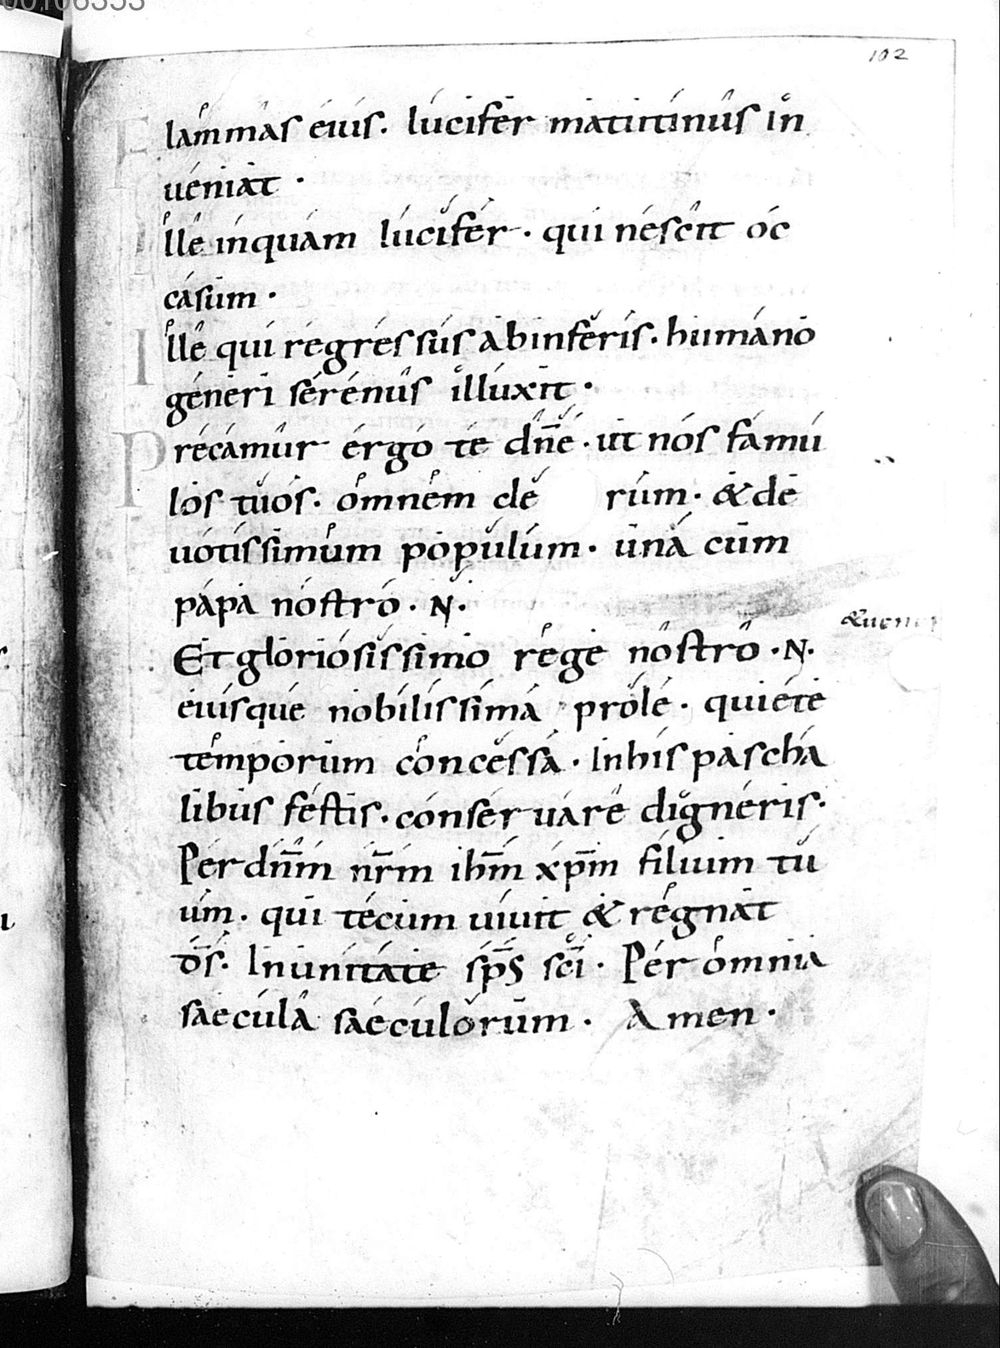 00106353
102
Flammas eius. lucifer matutinus in
ueniat ·
Ille inquam lucifer · qui nescit oc
casum ·
Ille qui regressus ab inferis · humano
generi serenus illuxit ·
Precamur ergo te dn̄e · ut nos famu
los tuos · omnem cle rum · & de
uotissimum populum · una cum
papa nostro · N ·
&uen
Et gloriosissimo rege nostro · N ·
eiusque nobilissima prole · quiete
temporum concessa · In his pascha
libus festis · conseruare digneris ·
Per dn̄m nr̄m ihm̄ xp̄m filium tu
um · qui tecum uiuit & regnat
d̄s · In unitate sp̄s sc̄i · Per omnia
saecula saeculorum · Amen ·